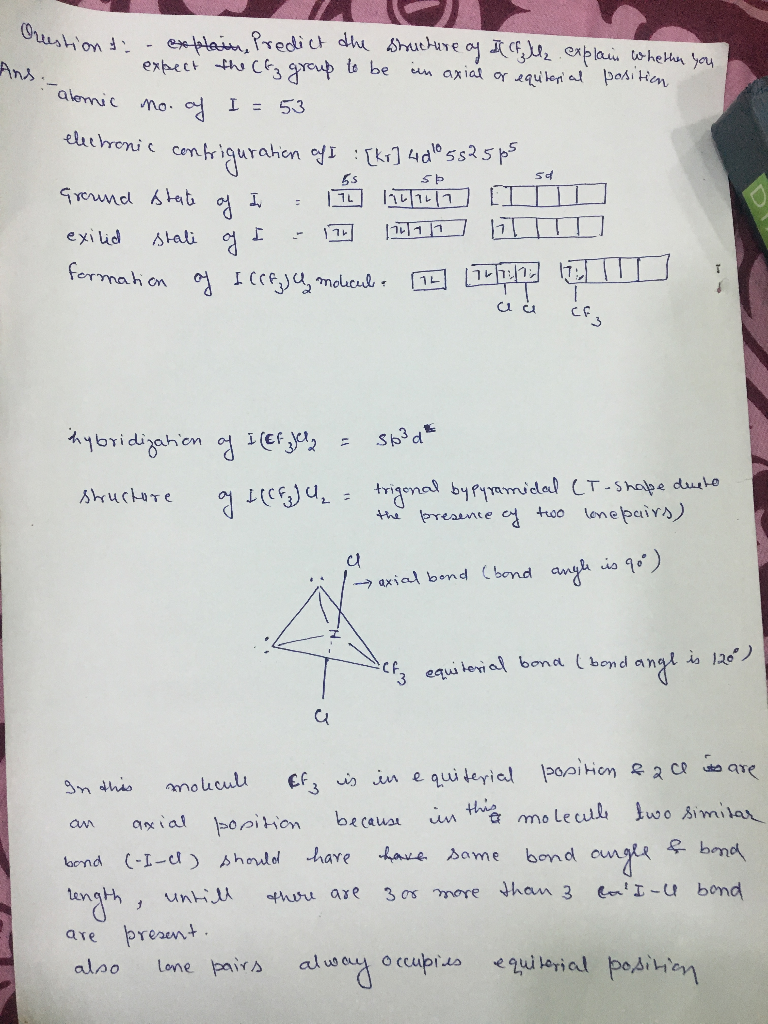 Question 1:- explain, Predict the structure of I(CF3)Cl2. explain whether you
expect the CF3 group to be in axial or equiterial position
Ans:- atomic no. of I = 53
electronic configuration of I : [Kr] 4d10 5s2 5p5
5s 5p 5d
Ground state of I :
exited state of I :-
formation of I(CF3)Cl2 molecule =
Cl Cl CF3
hybridization of I(CF3)Cl2 = sp3d
structure of I(CF3)Cl2 = trigonal bypyramidal (T-shape due to
the presence of two lone pairs)
Cl
→ axial bond (bond angle is 90°)
I
CF3 equiterial bond (bond angl is 120°)
Cl
In this molecule CF3 is in equiterial position & 2 Cl is are
an axial position because in this molecule two similar
bond (-I-Cl) should have have same bond angle & bond
length, untill there are 3 or more than 3 I-Cl bond
are present.
also lone pairs alway occupies equiterial position